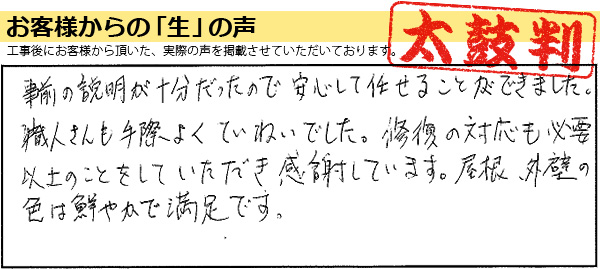 お客様からの「生」の声
太鼓判
工事後にお客様から頂いた、実際の声を掲載させていただいております。
事前の説明が十分だったので安心して任せることができました。
職人さんも手際よくていねいでした。修復の対応も必要
以上のことをしていただき感謝しています。屋根、外壁の
色は鮮やかで満足です。